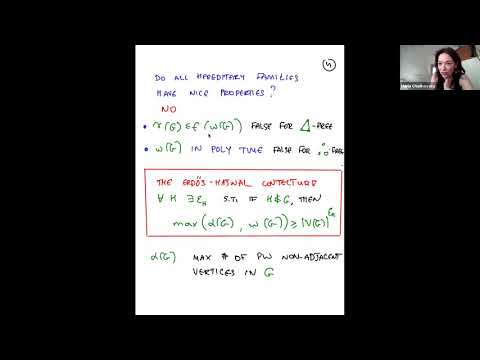 4
DO ALL HEREDITARY FAMILIES
HAVE NICE PROPERTIES?
NO
• χ(G) ≤ f(ω(G)) FALSE FOR △-FREE
• ω(G) IN POLY TIME FALSE FOR -FREE
THE ERDŐS-HAJNAL CONJECTURE
∀ H ∃ ε_H S.T. IF H ⊄ G, THEN
max(α(G), ω(G)) ≥ |V(G)|^ε_H
α(G) MAX # OF PW NON-ADJACENT
VERTICES IN G
Maria Chudnovsky